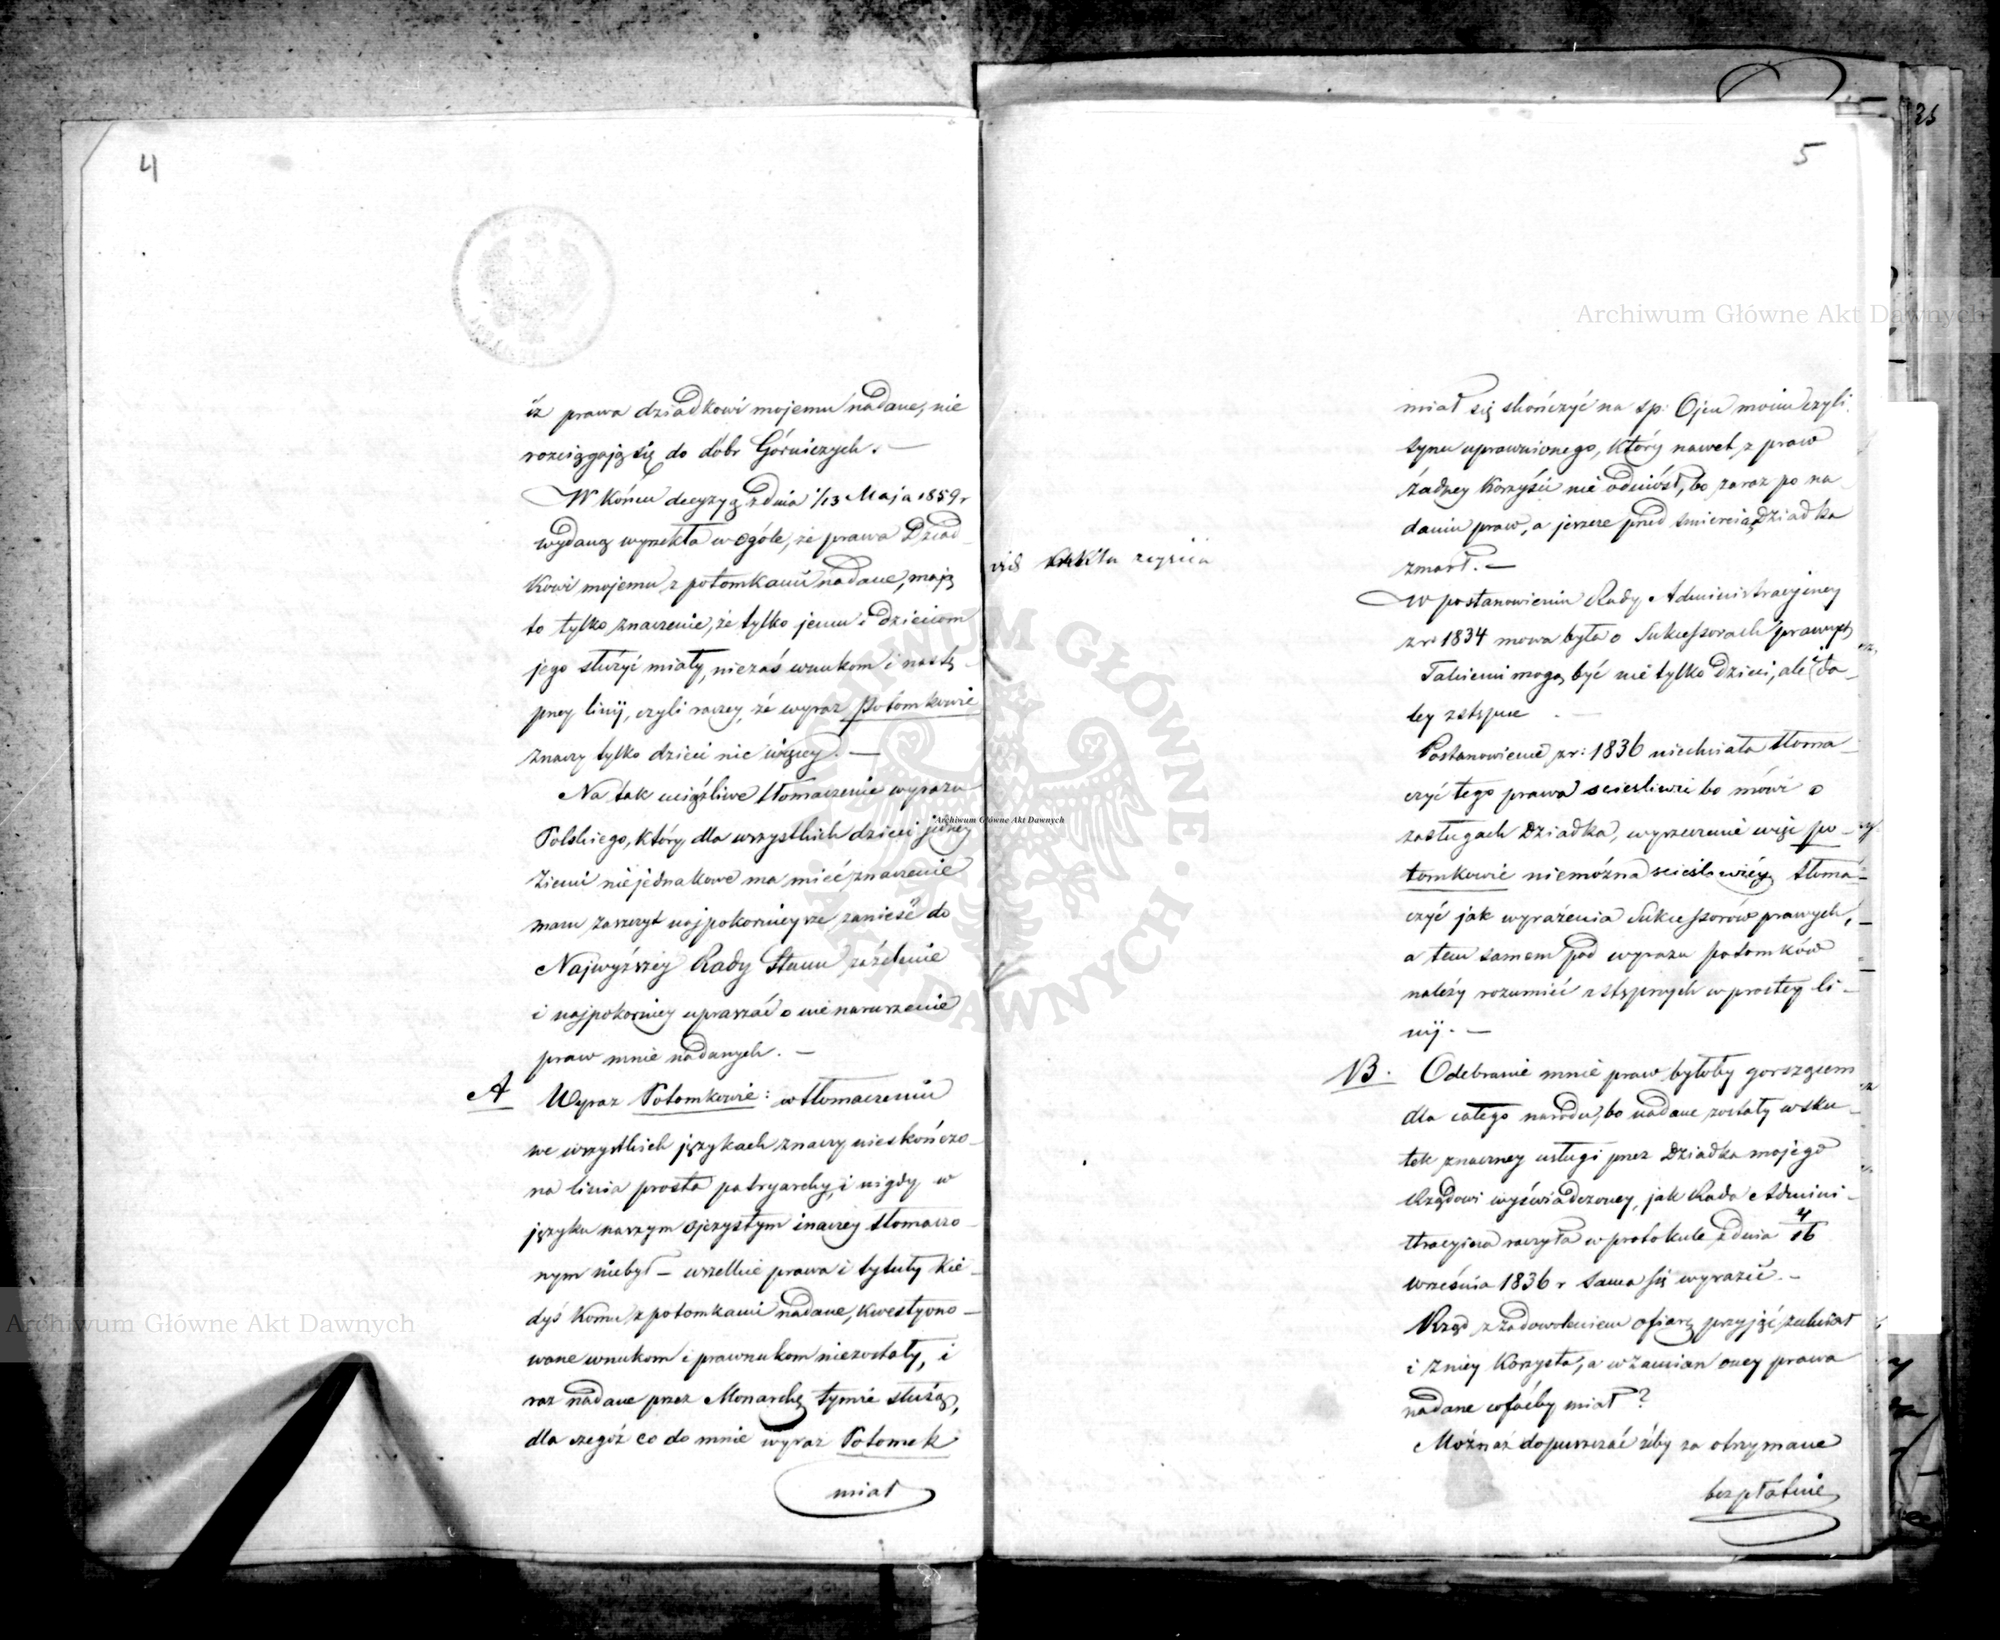 4
iż prawa dziadkowi mojemu nadane, nie
rozciągają się do dóbr Górniczych. —
W końcu decyzyą z dnia 1/13 Maja 1859 r
wydaną wyrzekła w ogóle, że prawa Dziad-
kowi mojemu z potomkami nadane, mają
to tylko znaczenie, że tylko jemu i dzieciom
jego służyć miały, niezaś wnukom i nastę-
pney linij, czyli raczey, że wyraz potomkowie
znaczy tylko dzieci nic więcey. —
Na tak uciążliwe tłomaczenie wyrazu
Polskiego, który dla wszystkich dzieci jedney
Ziemi niejednakowe ma mieć znaczenie
mam zaszczyt najpokorniey sze zanieść do
Najwyższéy Rady Stanu zażalenie
i najpokorniey upraszać o nie naruszenie
praw mnie nadanych. —
A Wyraz Potomkowie: w tłomaczeniu
we wszystkich językach znaczy nieskończo-
na linia prosta patryarchy, i nigdy w
języku naszym ojczystym inaczey tłomaczo-
nym niebył — wszelkie prawa i tytuły kie-
dyś komu z potomkami nadane, kwestyono-
wane wnukom i prawnukom niezostały, i
raz nadane przez Monarchę tymże służą,
dla czegóż co do mnie wyraz Potomek
miał
5
miał się skończyć na sp: Ojcu moim czyli
synu uprawnionego, który nawet z praw
żadney korzyści nie odniósł, bo zaraz po na-
daniu praw, a jeszcze przed śmiercią Dziadka
zmarł. —
W postanowieniu Rady Administracyjney
z r: 1834 mowa była o Sukcessorach prawnych
Takiemi mogą być nie tylko Dzieci, ale i da-
ley zstępne. —
Postanowienie z r: 1836 niechciała tłoma-
czyć tego prawa scieśliwie bo mówi o
zasługach Dziadka, wyrzeczenie więc po-
tomkowie niemożna scieśliwiéy tłoma-
czyć jak wyrażenia Sukcessorów prawych,
a tem samem pod wyrazu potomków
należy rozumieć zstępnych w prostey li-
nij. —
B. Odebranie mnie praw byłoby gorszącem
dla całego narodu, bo nadane zostały w sku-
tek znaczney usługi przez Dziadka mojego
Rządowi wyświadczoney, jak Rada Admini-
stracyjna raczyła w protokule z dnia 4/16
września 1836 r sama się wyrazić. —
Rząd z zadowoleniem ofiarę przyjąć
i zniey korzysta, a w zamian oney prawa
nadane cofaćby miał?
Możnaż dopuszczać żeby za otrzymane
bezpłatnie
Archiwum Główne Akt Dawnych
Archiwum Główne Akt Dawnych
Archiwum Główne Akt Dawnych
ARCHIWUM GŁÓWNE AKT DAWNYCH